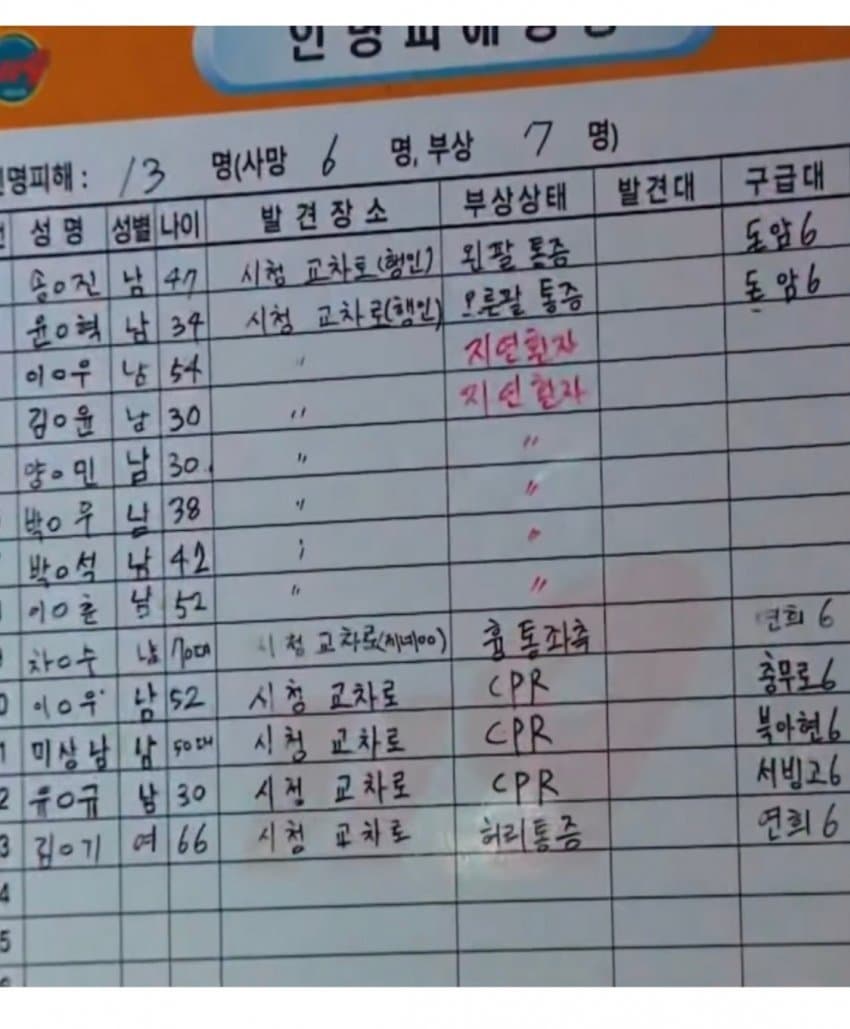 인명피해상황
인명피해 : 13 명(사망 6 명, 부상 7 명)
성 명 성별 나이 발 견 장 소 부상상태 발견대 구급대
송o진 남 47 시청 교차로(행인) 왼팔 통증 돈암6
윤o혁 남 34 시청 교차로(행인) 오른팔 통증 돈암6
이o우 남 54 〃 지연환자
김o윤 남 30 〃 지연환자
양o민 남 30 〃 〃
박o우 남 38 〃 〃
박o석 남 42 〃 〃
이o훈 남 52 〃 〃
차o수 남 70대 시청 교차로 흉통좌측 연희6
0 이o우 남 52 시청 교차로 CPR 충무로6
1 미상남 남 50대 시청 교차로 CPR 북아현6
2 유o규 남 30 시청 교차로 CPR 서빙고6
3 김o기 여 66 시청 교차로 허리통증 연희6
4
5